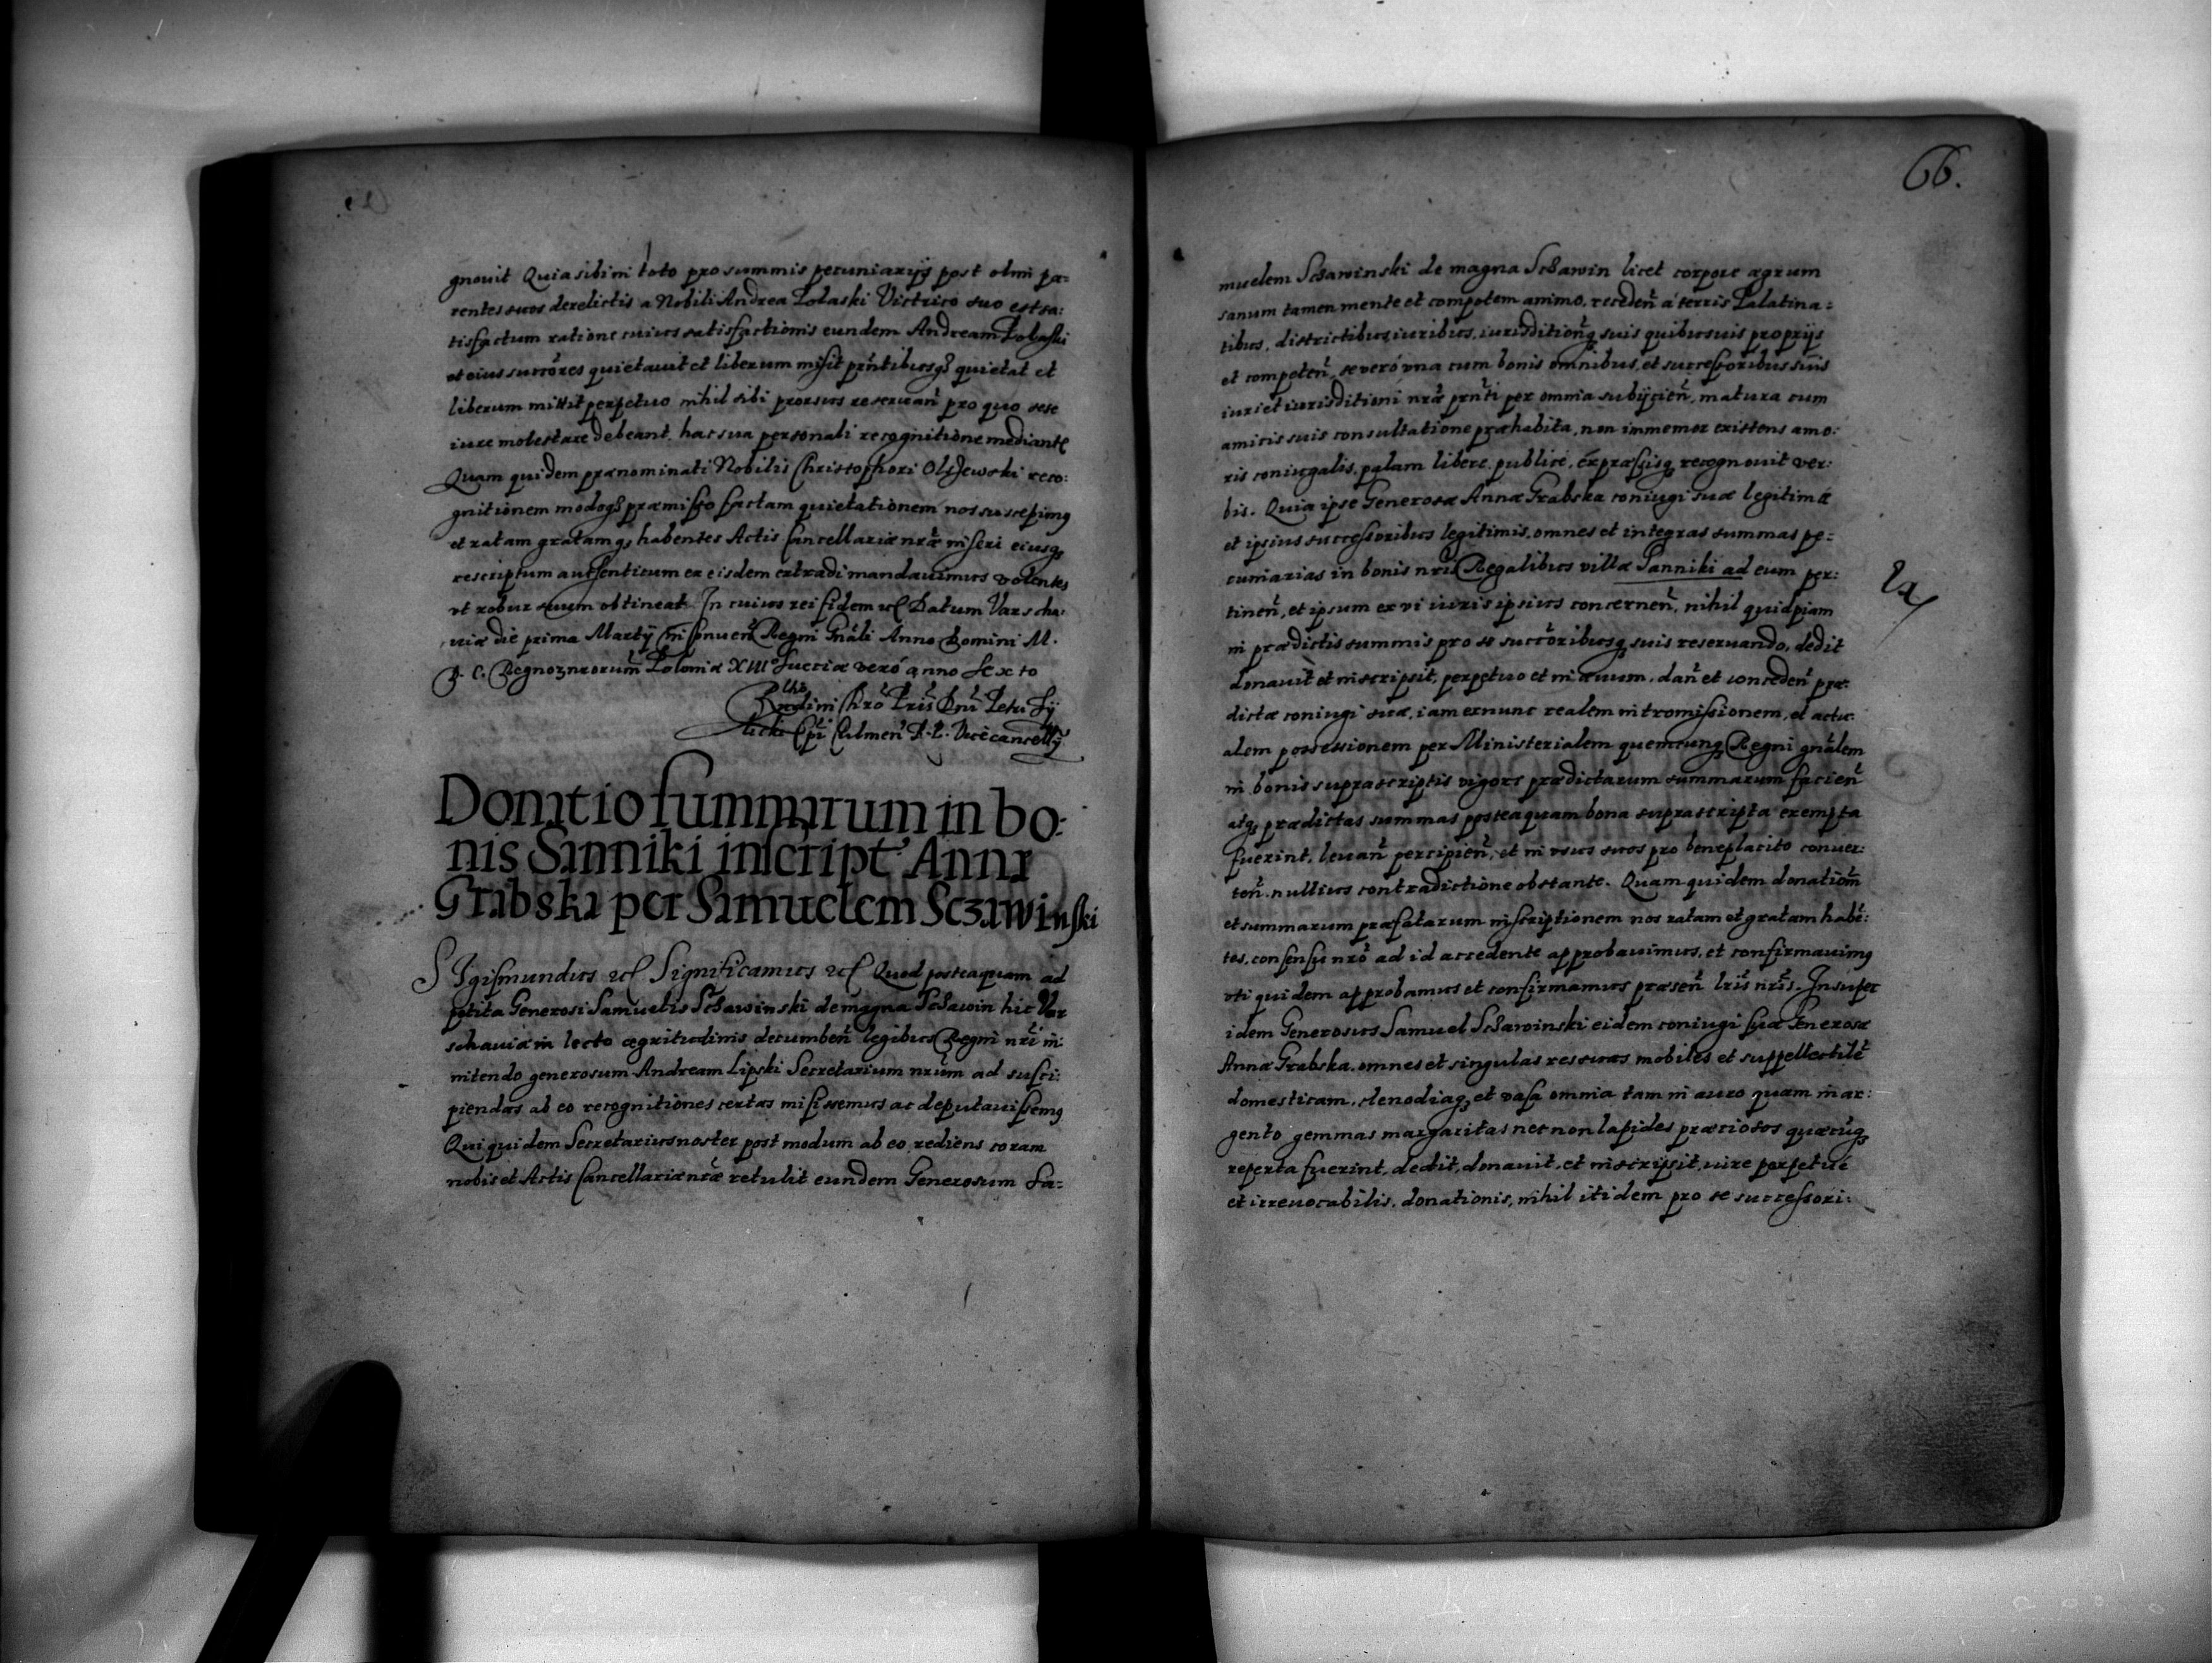 gnouit Quia sibi in toto pro summis pecuniarijs post olim pa=
rentes suos derelictis a Nobili Andrea Tolaski Victrico suo est sa:
tisfactum ratione cuius satisfactionis eundem Andream Tolaski
et eius succ̃ores quietauit et liberum misit prñtibusq̃ quietat et
liberum mittit perpetuo nihil sibi prorsus reseruañ pro quo sese
iure molestare debeant. hac sua personali recognitione mediante
Quam quidem prænominati Nobilis Christophori Olszewski reco:
gnitionem modoq̃ præmisso factam quietationem nos suscepimq
et ratam gratamq, habentes Actis Cancellariæ nr̃æ inseri eiusq,
rescriptum autsenticum ex eisdem extradi mandauimus volentes
vt robur suum obtineat. In cuius rei fidem etc Datum Varscha:
uiæ die prima Martij in Conueñ Regni Gñali Anno Domini M.
D. C. Regnoꝝ nrorum̃ Poloniæ XIIIº Sueciæ veró anno Sexto
Rndi in Chrõ Pris̃ Dñi Petri Ty
licki Ep̃i Culmeñ R. P. Vicecancellȳ
Donatio summarum in bo:
nis Sanniki inscript' Annæ
Grabska per Samuelem Sczawinski
SIgismundus etc Significamus etc Quod posteaquam ad
petita Generosi Samuelis Sczawinski de magna Sczawin hic Var
schauiæ in lecto ægritudinis decumbeñ legibus Regni nr̃i in:
nitendo generosum Andream Lipski Secretarium nrũm ad susci:
piendas ab eo recognitiones certas misissemus ac deputauissemq
Qui quidem Secretarius noster post modum ab eo rediens coram
nobis et Actis Cancellariæ nr̃æ retulit eundem Generosum Sa=
66.
muelem Sczawinski de magna Sczawin licet corpore ægrum
sanum tamen mente et compotem animo, recedeñ á terris Palatina=
tibus, districtibus, iuribus, iurisditioñq suis quibusuis proprijs
et competeñ, se veró vna cum bonis omnibus, et successoribus suis
iuri et iurisditioni nrǽ prñti per omnia subijcieñ, matura cum
amicis suis consultatione præhabita, non immemor existens amo:
ris coniugalis, palam libere, publicé, éxpræssisq, recognouit ver:
bis. Quia ipse Generosæ Annæ Grabska coniugi suæ legitimæ
et ipsius successoribus legitimis, omnes et integras summas pe=
cuniarias in bonis nris̃ Regalibus villæ Sanniki ad eum per:
tineñ, et ipsum ex vi iuris ipsius concerneñ, nihil quidpiam
in prædictis summis pro se succ̃oribusq, suis reseruando, dedit
donauit et inscripsit, perpetuo et in æuum, dañ et concedeñ præ:
dictæ coniugi suæ, iam ex nunc realem intromissionem, et actu:
alem possessionem per Ministerialem quemcunq, Regni gñalem
in bonis suprascriptis vigore prædictarum summarum facieñ
atq, prædictas summas posteaquam bona suprascripta exempta
fuerint, leuañ percipieñ, et in vsus suos pro beneplacito conuer:
teñ. nullius contradictione obstante. Quam quidem donatiom̃
et summarum præfatarum inscriptionem nos ratam et gratam habẽ:
tes, consensu nrõ ad id accedente approbauimus, et confirmauimq
vti quidem approbamus et confirmamus præseñ lris̃ nris̃. Insuper
idem Generosus Samuel Sczawinski eidem coniugi suæ Generosæ
Annæ Grabska. omnes et singulas res suas mobiles et suppellectilẽ
domesticam, clenodiaq, et vasa omnia tam in auro quam in ar:
gento gemmas margaritas necnon lapides præciosos quæcũq,
reperta fuerint, dedit, donauit, et inscripsit, iure perpetuæ
et irreuocabilis, donationis, nihil itidem pro se successori: